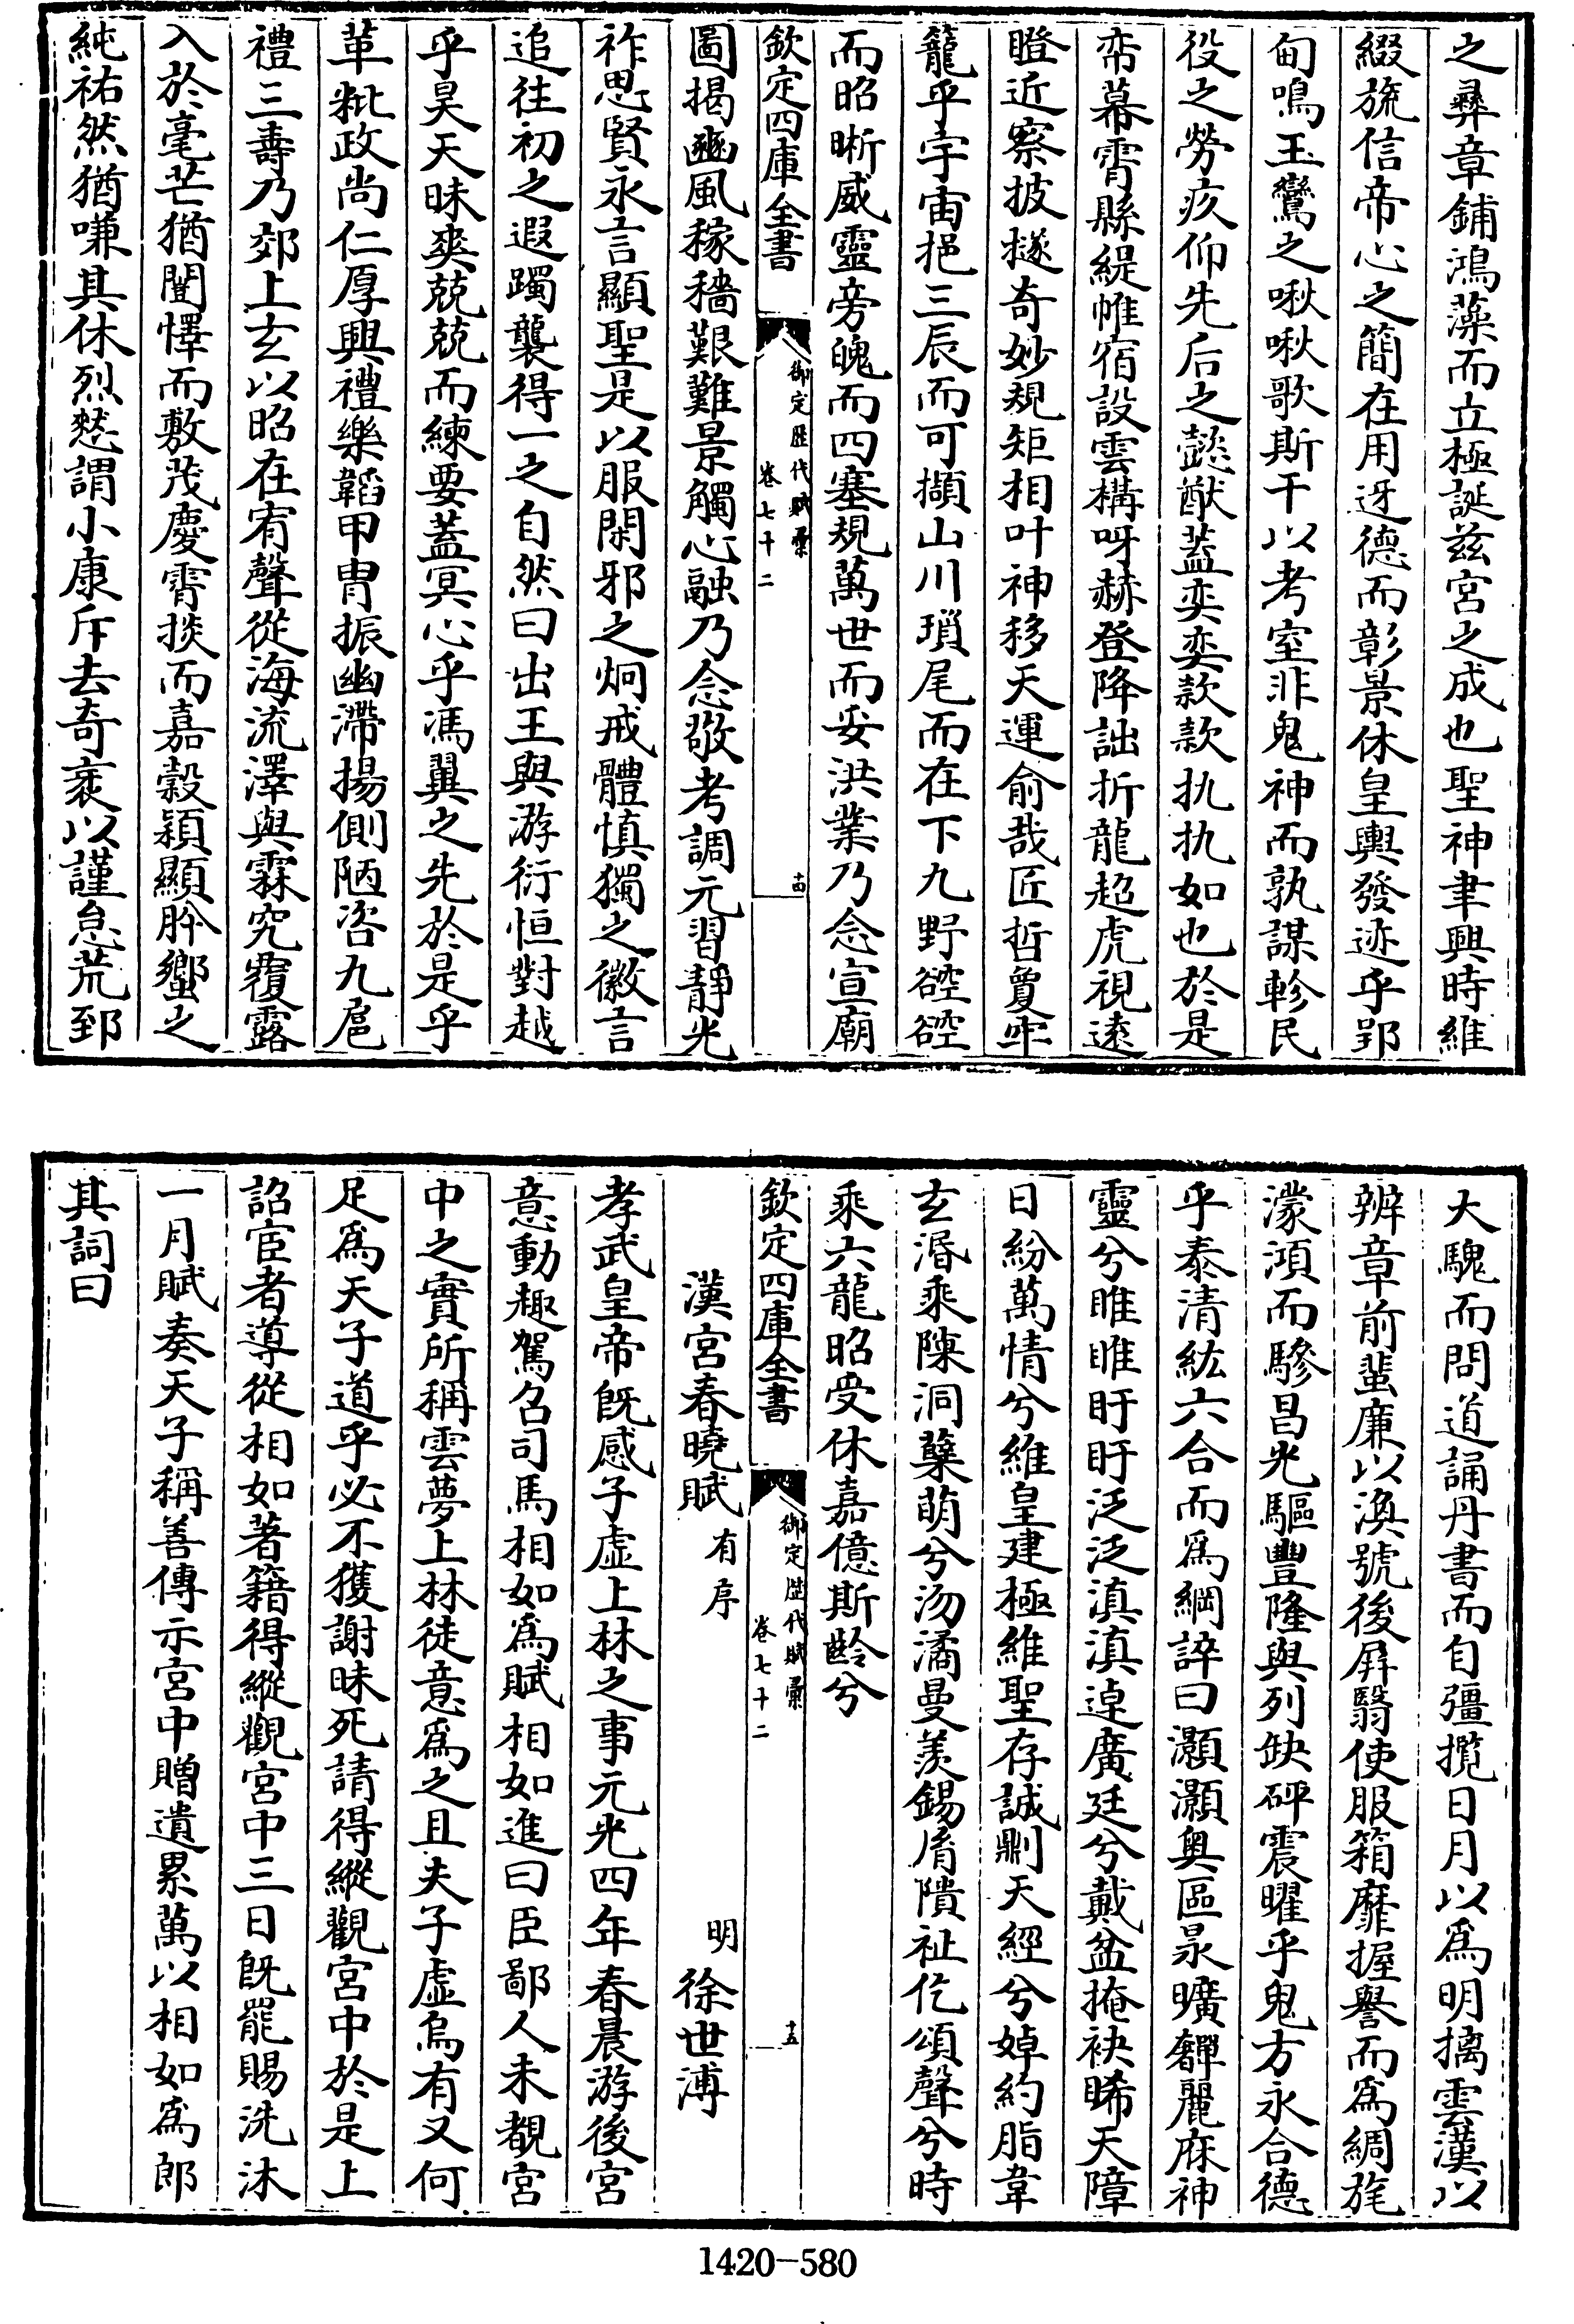 之彞章鋪鴻藻而立極誕兹宮之成也聖神聿興時維
綴旒信帝心之簡在用迓德而彰景休皇輿發迹乎郢
甸鳴玉鸞之啾啾歌斯干以考室非鬼神而孰謀軫民
役之勞疚仰先后之懿猷蓋奕奕款款执执如也於是
帟幕霄縣緹帷宿設雲構呀赫登降詘折龍超虎視逺
瞪近察披㩠奇妙規矩相叶神移天運俞哉匠哲敻牢
籠乎宇宙挹三辰而可擷山川瑣尾而在下九野硿硿
而昭晣威靈旁魄而四塞規萬世而妥洪業乃念宣廟
欽定四庫全書
御定歴代賦彙
卷七十二
十四
圖揭豳風稼穡艱難景觸心融乃念敬考調元習靜光
祚思賢永言顯聖是以服閑邪之炯戒體慎獨之徽言
追往初之遐躅襲得一之自然曰出王與游衍恒對越
乎昊天昧爽兢兢而練要蓋冥心乎馮翼之先於是乎
革粃政尚仁厚興禮樂韜甲胄振幽滯揚側陋咨九扈
禮三壽乃郊上玄以昭在宥聲從海流澤與霖究覆露
入於毫芒猶聞懌而敷茂慶霄掞而嘉穀頴顯肸蠁之
純祐然猶嗛其休烈愁謂小康斥去奇衺以謹怠荒郅
大騩而問道誦丹書而自彊攬日月以爲明摛雲漢以
辨章前蜚廉以渙號後屏翳使服箱靡握譽而爲綢旄
濛澒而驂昌光驅豐隆與列缺砰震曜乎鬼方永合德
乎泰清紘六合而爲綱誶曰灝灝奥區㫤曠奲麗庥神
靈兮睢睢盱盱泛泛滇滇逴廣廷兮戴盆掩袂睎天障
日紛萬情兮維皇建極維聖存誠剬天經兮婥約脂韋
玄湣乘陳洞蘖萌兮沕潏曼羨錫胥隤祉仡頌聲兮時
乘六龍昭受休嘉億斯齡兮
欽定四庫全書
御定歴代賦彙
卷七十二
十五
漢宮春曉賦有序
明徐世溥
孝武皇帝旣感子虚上林之事元光四年春晨游後宮
意動趣駕召司馬相如爲賦相如進曰臣鄙人未覩宮
中之實所稱雲夢上林徒意爲之且夫子虚烏有又何
足爲天子道乎必不獲謝昧死請得縱觀宮中於是上
詔宦者導從相如著籍得縱觀宮中三日旣罷賜洗沐
一月賦奏天子稱善傳示宮中贈遺累萬以相如爲郎
其詞曰
1420-580